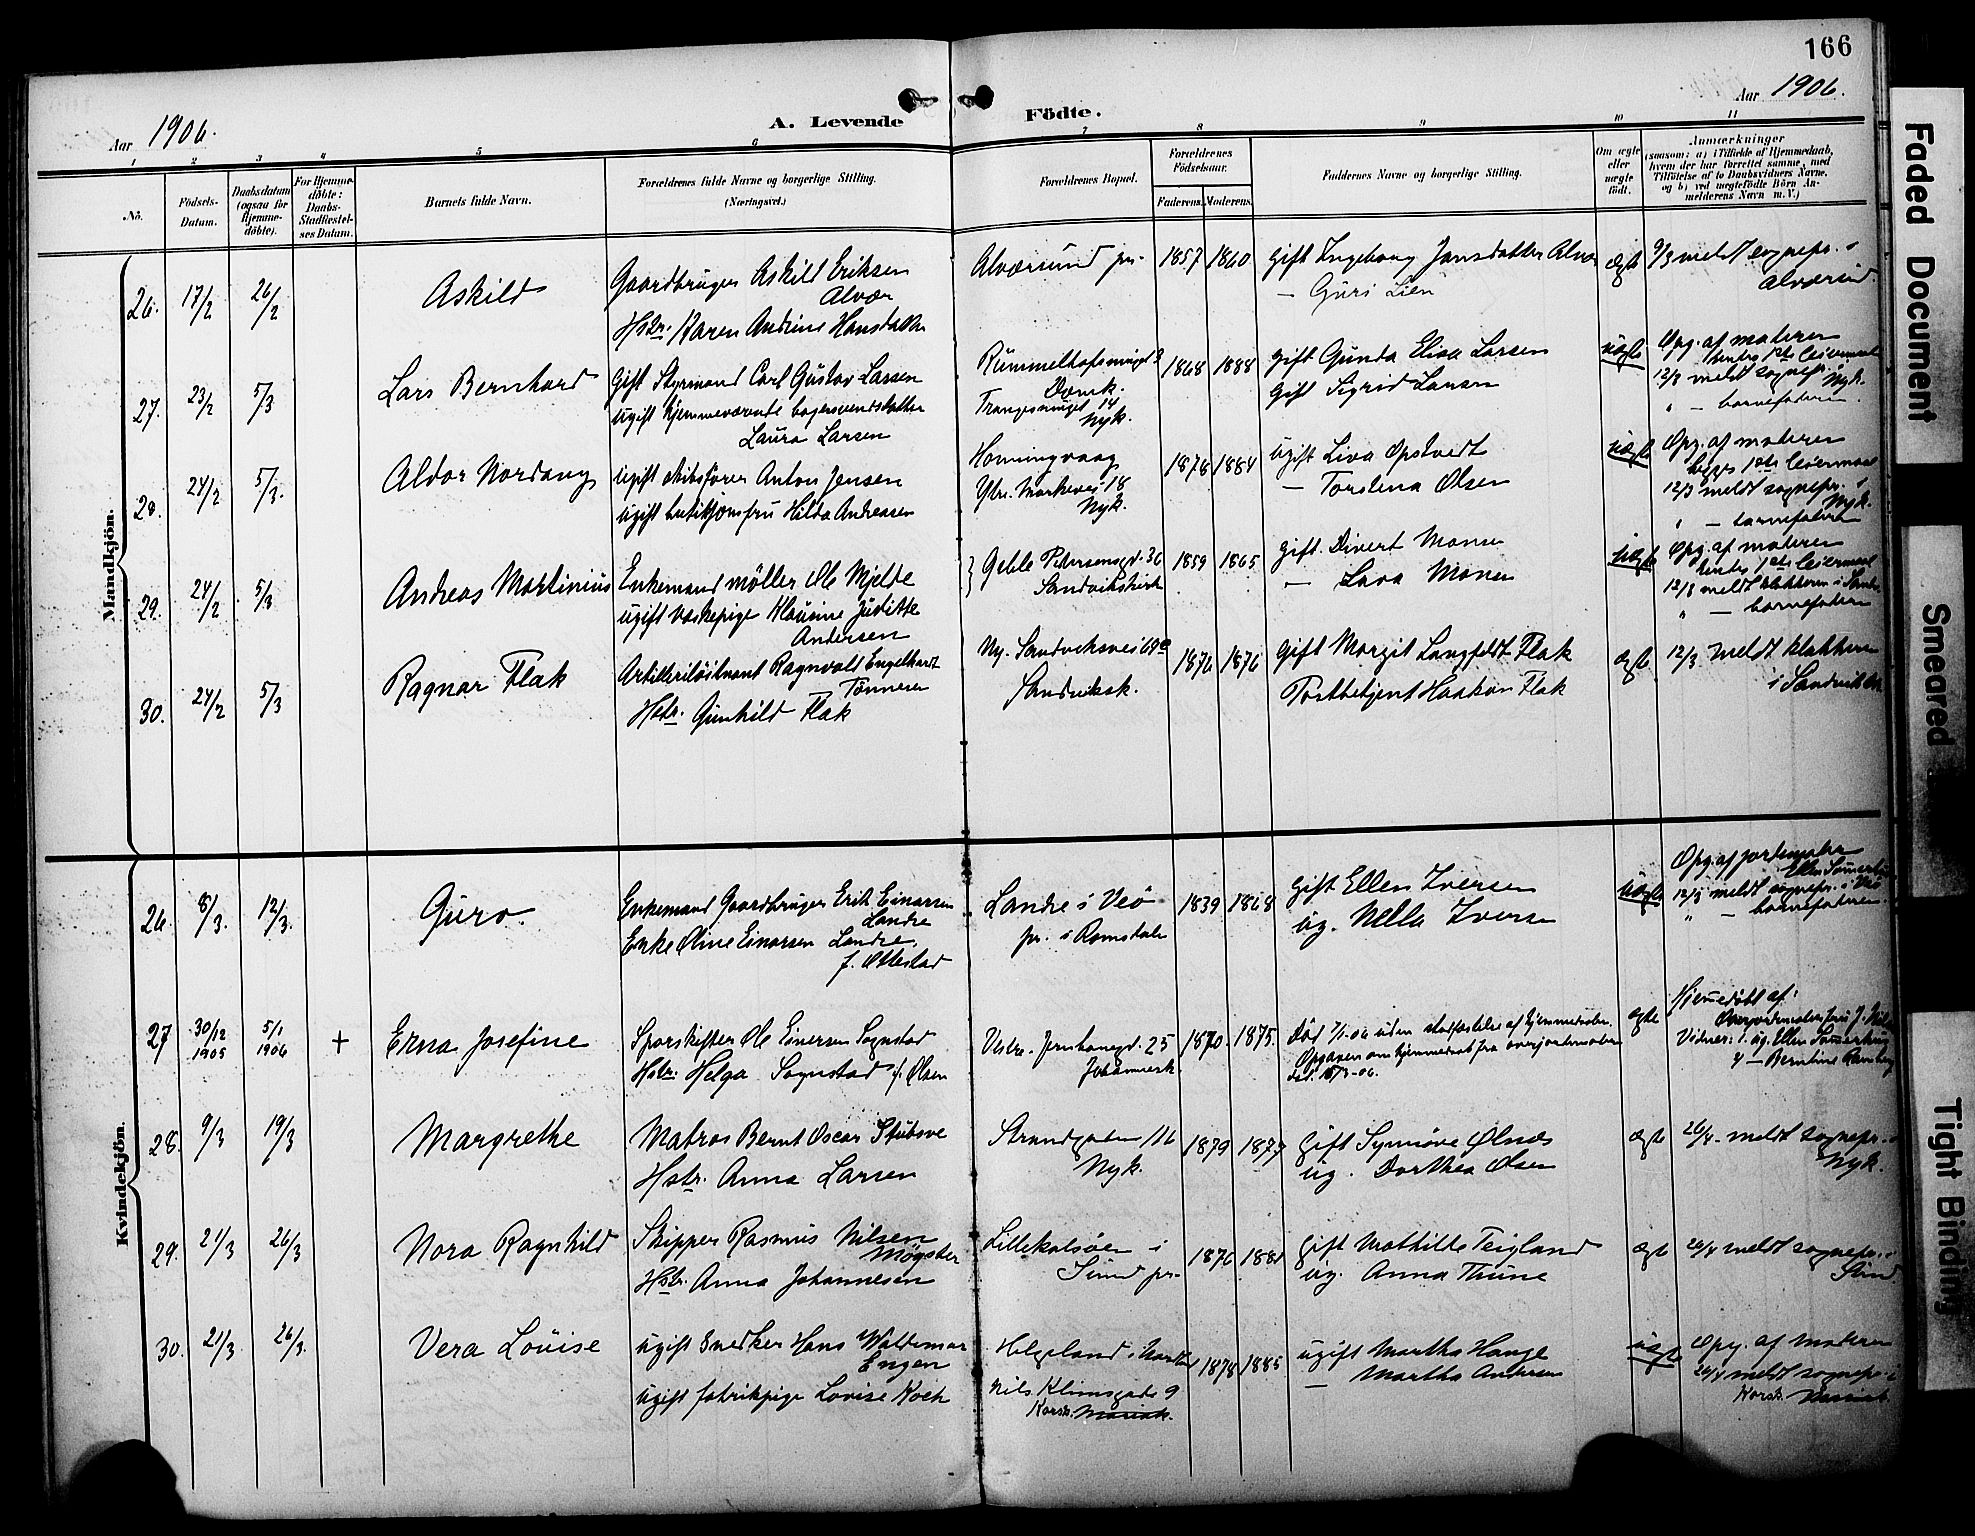 166
Aar 1906.
A. Levende
Födte.
Aar 1906.
1 2 3 4 5 6 7 8 9 10 11
No.
Födsels-Datum.
Daabsdatum (ogsaa for Hjemme-döbte).
For Hjemme-döbte: Daabs-Stadfæstel-ses Datum.
Barnets fulde Navn.
Forældrenes fulde Navne og borgerlige Stilling. (Næringsvei.)
Forældrenes Bopæl.
Forældrenes Födselsaar.
Faderens. Moderens.
Faddernes Navne og borgerlige Stilling.
Om ægte eller uægte födt.
Anmærkninger
(saasom: a) i Tilfælde af Hjemmedaab,
hvem der har forrettet samme, med
Tilföielse af to Daabsvidners Navne,
og b) ved uægtefödte Börn An-
melderens Navn m. V.)
Mandkjön.
26. 17/2 26/2 Askild
Gaardbruger Askild Eriksen
Alvær
Hstr. Karen Andrine Hansdatter
Alværsund pr. 1857 1860
Gift Ingeborg Jansdatter Alvær
— Guri Lien
ægte
9/3 meldt sognepr. i
Alværsund.
27. 23/2 5/3 Lars Bernhard
Gift Styrmand Carl Gustav Larsen
ugift hjemmeværende bagersvendsdatter
Laura Larsen
Dævik.
Trangesmuget 14
Nyk.
1868 1888
Gift Gunda Elisa Larsen
Gift Sigrid Larsen
uægte
Opg. af moderen
12/3 meldt sognepr. i
Nyk.
" — barnefaderen.
28. 24/2 5/3. Aldor Nordang
Ugift skibsfører Anton Jensen
ugift butikjomfru Hilda Andreasen
Honningvaag
Ytre Markevei 18
Nyk.
1878 1884
ugift Liva Opstvedt
— Torstena Olsen
uægte
Opg. af moderen
begges 1ste leiermaal
12/3 meldt sognepr. i
Nyk.
" — barnefaderen
29. 24/2 5/3 Andreas Martinius
Enkemand möller Ole Mjelde
ugift vaskepige Klausine Judithe
Andersen
Geble Pedersensgd. 36
Sandvikskirk
1859 1865
Gift. Divert Monsen
— Lava Monsen
uægte
Opg. af moderen
12/3 meldt klokkeren i Sandv.
" — barnefaderen
30. 24/2 5/3 Ragnar Flak
Artilleriløitnant Ragnvald Engelhardt
Tönnesen
Hstr. Gunhild Flak
Ny. Sandviksvei 69a
Sandviksk.
1876 1876
Gift Margit Langfeldt Flak
Postbetjent Haakon Flak
ægte
12/3. meldt klokkeren
i Sandviken
Kvindekjön.
26. 8/3. 12/3. Guro.
Enkemand Gaardbruger Erik Einarsen
Landre
Enke Oline Einarsen Landre.
f. Ottestad
Landre i Veö
pr. i Romsdalen
1839 1868
Gift Ellen Iversen
ug. Nella Iversen
uægte
Opg. af jordemoder
12/3 meldt sognepr. i Veö
" — barnefaderen.
27 30/12 1905 5/1 1906 + Erna Josefine
Sporskifter Ole Einersen Sognstad
Hstr. Helga Sognstad f. Olsen
Vestre Jernbanegd. 25
Johannesk.
1870. 1875.
Död 7/1-06 uden stadfæstelse af hjemmedaaben.
Opgaven om hjemmedaab fra overjordemoderen
ægte
Hjemmedöbt af:
Vidner: 1. ug. Ellen
28. 9/3 19/3 Margrethe
Matros Bernt Oscar Stubsve
Hstr. Anna Larsen
Strandgaden 116
Nyk.
1879 1877
Gift Synnöve Ølnæs
ug. Dorthea Olsen
ægte
26/4. meldt sognepr. i
Nyk.
29. 21/3 26/3 Nora Ragnhild
Skipper Rasmus Nilsen
Møgster
Hstr. Anna Johannesen
Lillekalsöen i
Sund pr.
1876 1881
Gift Mathilde Teigland
ug. Anna Thune
ægte
26/4 meldt sognepr. i
Sund
30. 21/3 26/3. Vera Louise
ugift Snedker Hans Waldemar
Engen
ugift fabrikpige Lovise Koch
Helgeland i Nordland
Nils Klimsgade 9
Korsk. Mariak.
1878 1885
ugift Martha Hauge
— Martha Andersen
uægte
Opg. af moderen
26/4 meldt sognepr. i
Korsk. Mariak.
Faded Document
Smeared
Tight Binding